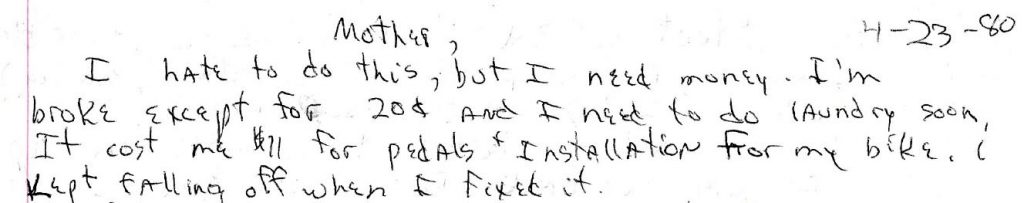 Mother, 4-23-80
I hate to do this, but I need money. I'm
broke except for 20¢ and I need to do laundry soon,
It cost me $11 for pedals & Installation for my bike. I
kept falling off when I fixed it.